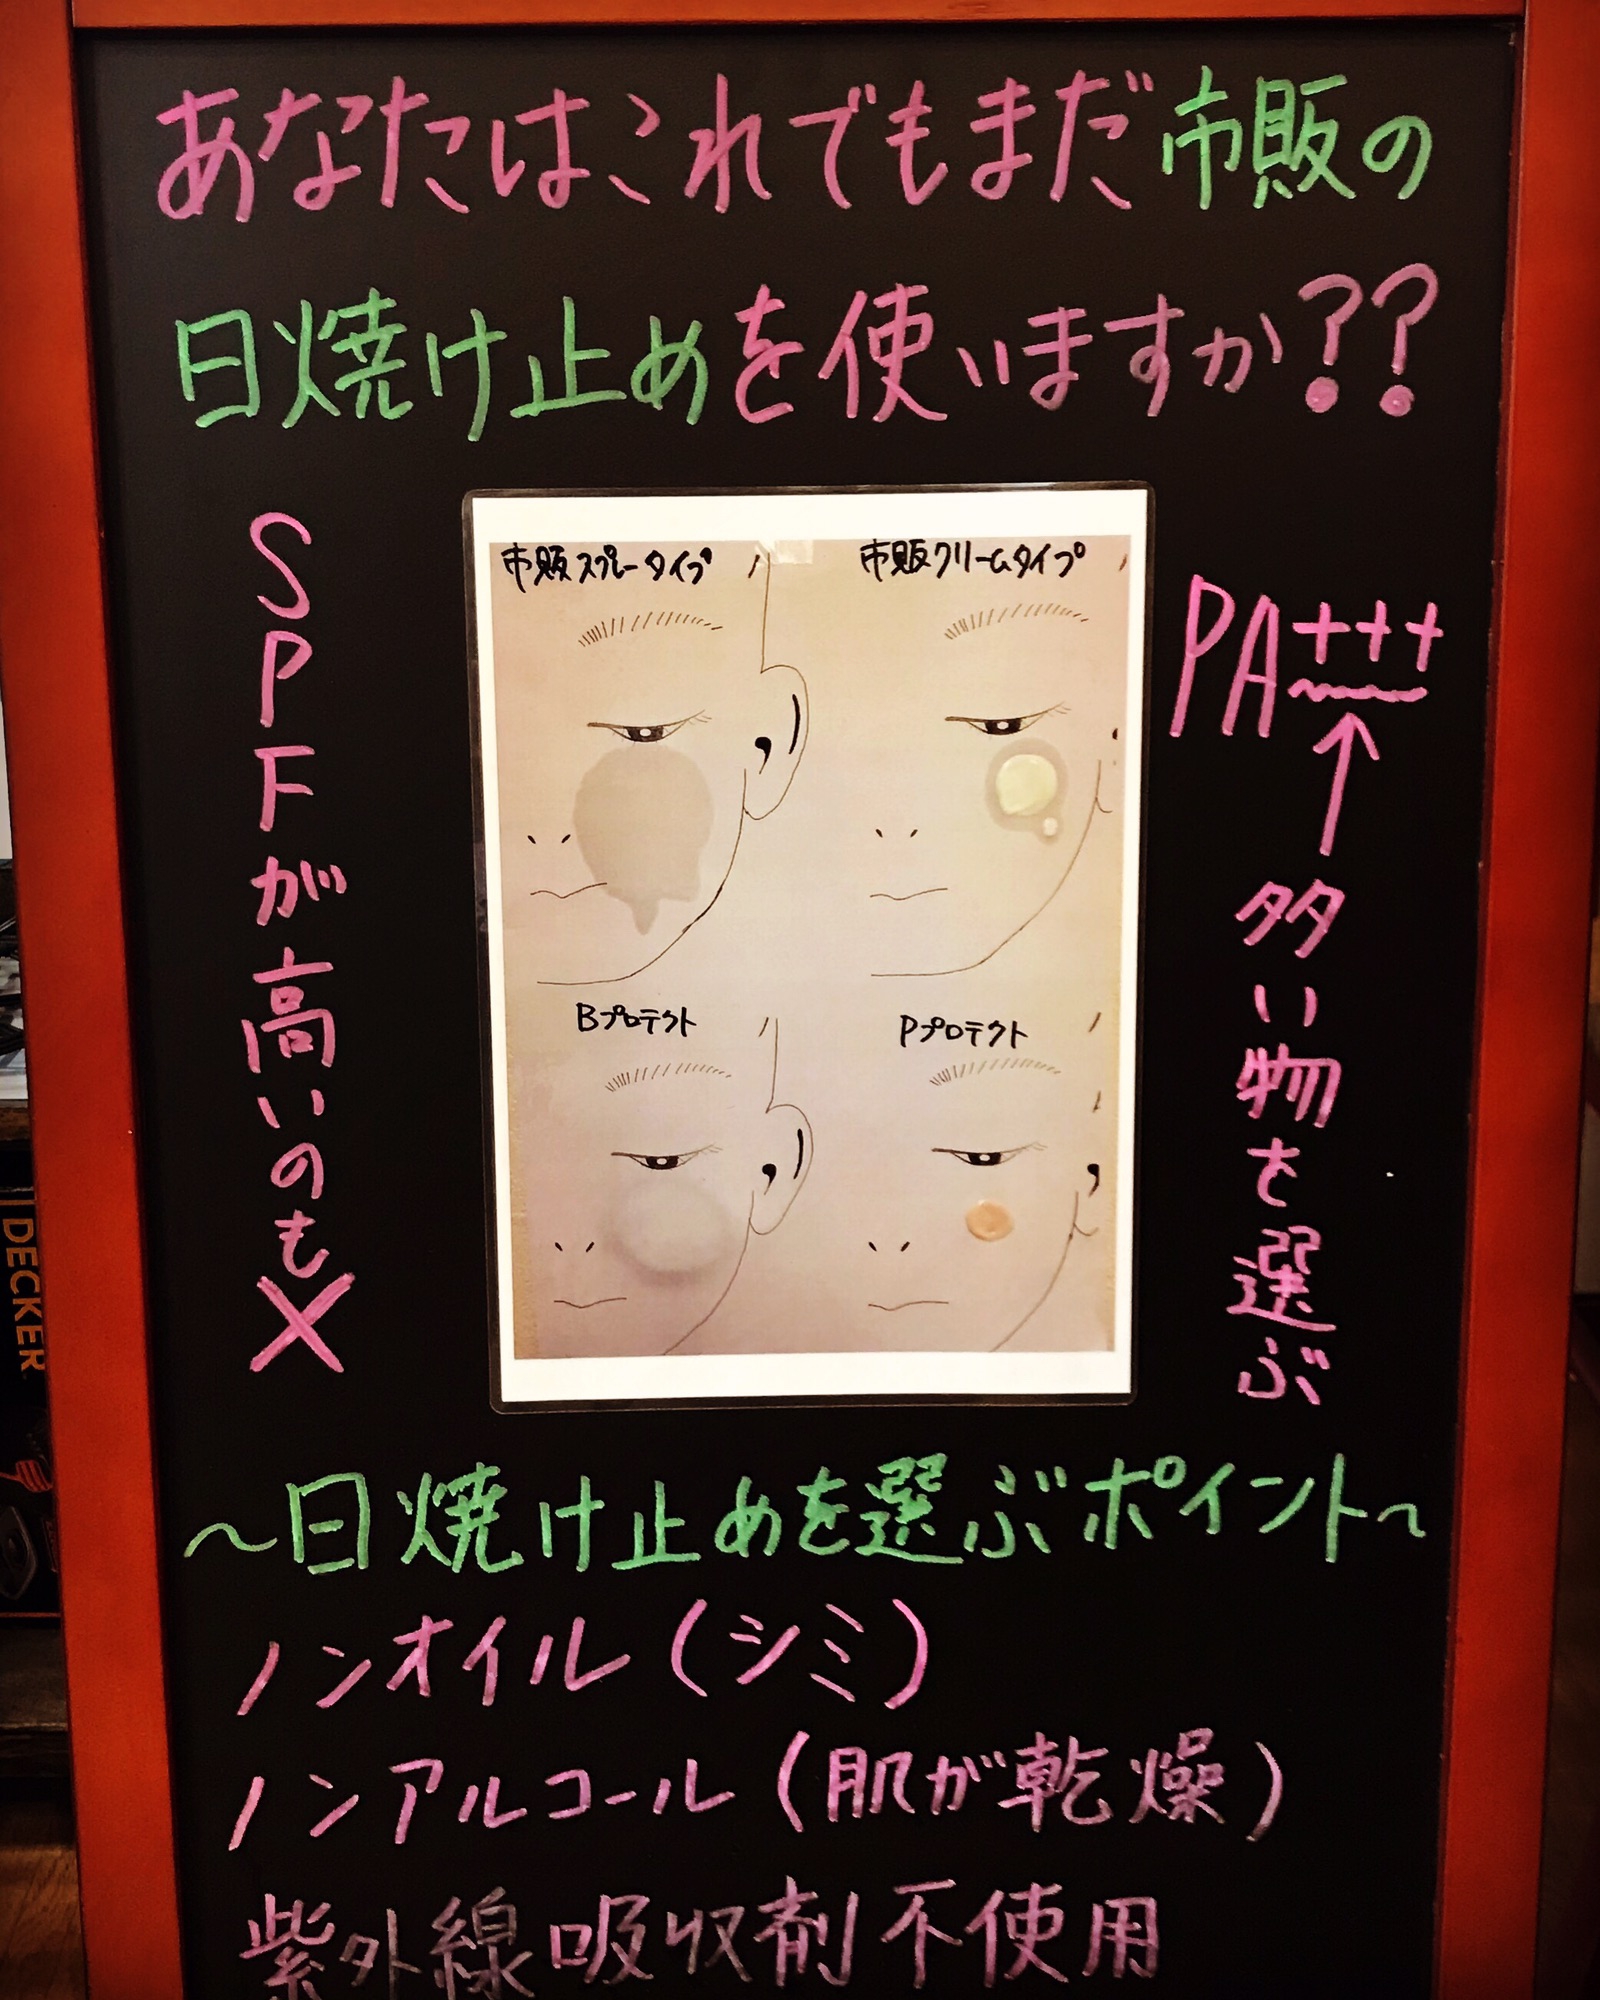 あなたはこれでもまだ市販の
日焼け止めを使いますか??
SPFが高いのも×
市販スプレータイプ
市販クリームタイプ
Bプロテクト
Pプロテクト
PA+++
↑
多い物を選ぶ
～日焼け止めを選ぶポイント～
ノンオイル(シミ)
ノンアルコール(肌が乾燥)
紫外線吸収剤不使用
DECKER